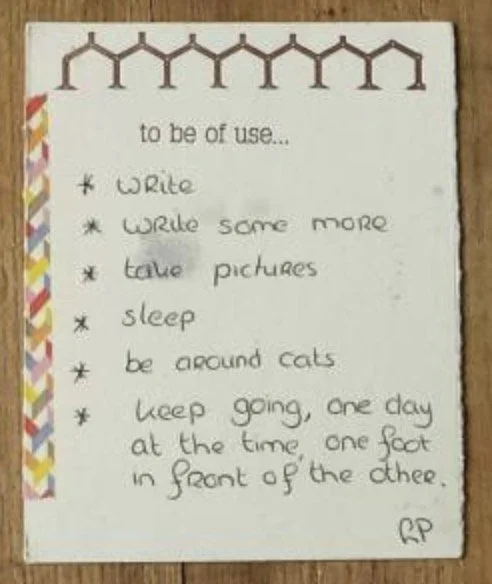 to be of use...
* write
* write some more
* take pictures
* sleep
* be around cats
* keep going, one day
at the time, one foot
in front of the other.